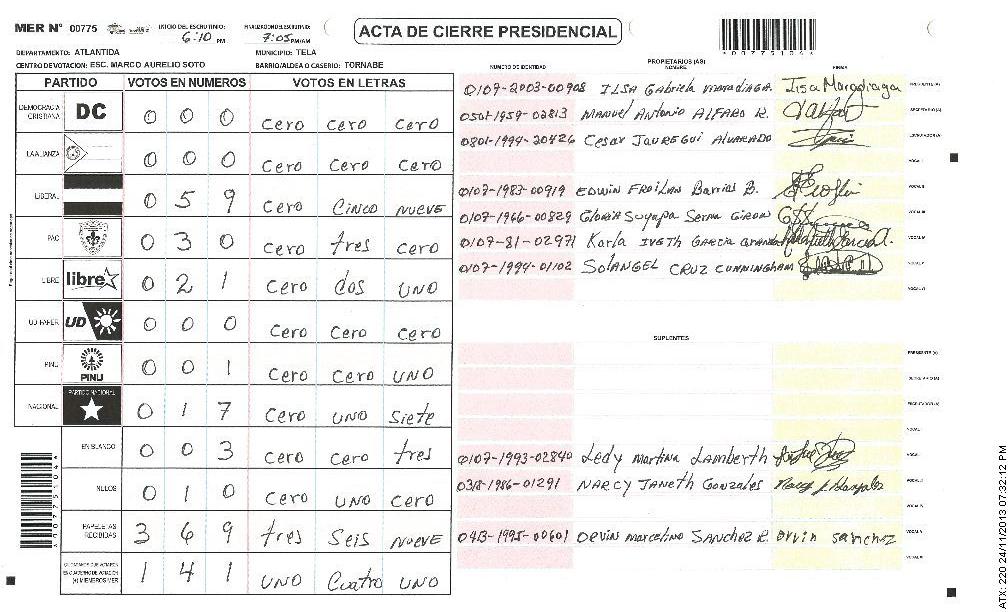 MER N° 00775
INICIO DEL ESCRUTINIO: 6:10 PM
FINALIZACION DEL ESCRUTINIO: 7:05 PM/AM
ACTA DE CIERRE PRESIDENCIAL
DEPARTAMENTO: ATLANTIDA
MUNICIPIO: TELA
CENTRO DE VOTACION: ESC. MARCO AURELIO SOTO
BARRIO/ALDEA O CASERIO: TORNABE
PARTIDO VOTOS EN NUMEROS VOTOS EN LETRAS
DEMOCRACIA CRISTIANA DC 0 0 0 cero cero cero
LA ALIANZA 0 0 0 cero cero cero
LIBERAL 0 5 9 cero CINCO NUEVE
PAC 0 3 0 cero tres cero
LIBRE libre 0 2 1 cero dos UNO
UD FAPER UD 0 0 0 cero cero cero
PINU PINU 0 0 1 cero cero UNO
NACIONAL PARTIDO NACIONAL 0 1 7 cero UNO siete
EN BLANCO 0 0 3 cero cero tres
NULOS 0 1 0 cero UNO cero
PAPELETAS RECIBIDAS 3 6 9 tres seis NUEVE
CIUDADANOS QUE VOTARON EN CUADERNO DE VOTACION (+) MIEMBROS MER 1 4 1 UNO cuatro UNO
PROPIETARIOS (AS)
NUMERO DE IDENTIDAD NOMBRE FIRMA
0107-2003-00908 ILSA Gabriela maradiaga Ilsa Maradiaga PRESIDENTE (A)
0501-1959-02813 MANUEL ANTONIO ALFARO R. SECRETARIO (A)
0801-1994-20426 Cesar JAUREGUI ALVARADO ESCRUTADOR (A)
VOCAL I
0107-1983-00919 EDWIN FROILAN Barrios B. VOCAL II
0107-1966-00829 Gloria Suyapa Serna GIRON VOCAL III
0107-81-02971 Karla IVETH GARCIA VOCAL IV
0107-1994-01102 SolANGEL CRUZ CUNNINGHAM VOCAL V
VOCAL VI
SUPLENTES
PRESIDENTE (A)
SECRETARIO (A)
ESCRUTADOR (A)
VOCAL I
0107-1993-02840 Ledy martina Lamberth VOCAL II
0318-1986-01291 NARCY JANETH Gonzales VOCAL III
VOCAL IV
0413-1995-00601 ORVIN marcelino SANCHEZ R. orvin sanchez VOCAL V
VOCAL VI
*00775104*
ATX: 220 24/11/2013 07:32:12 PM